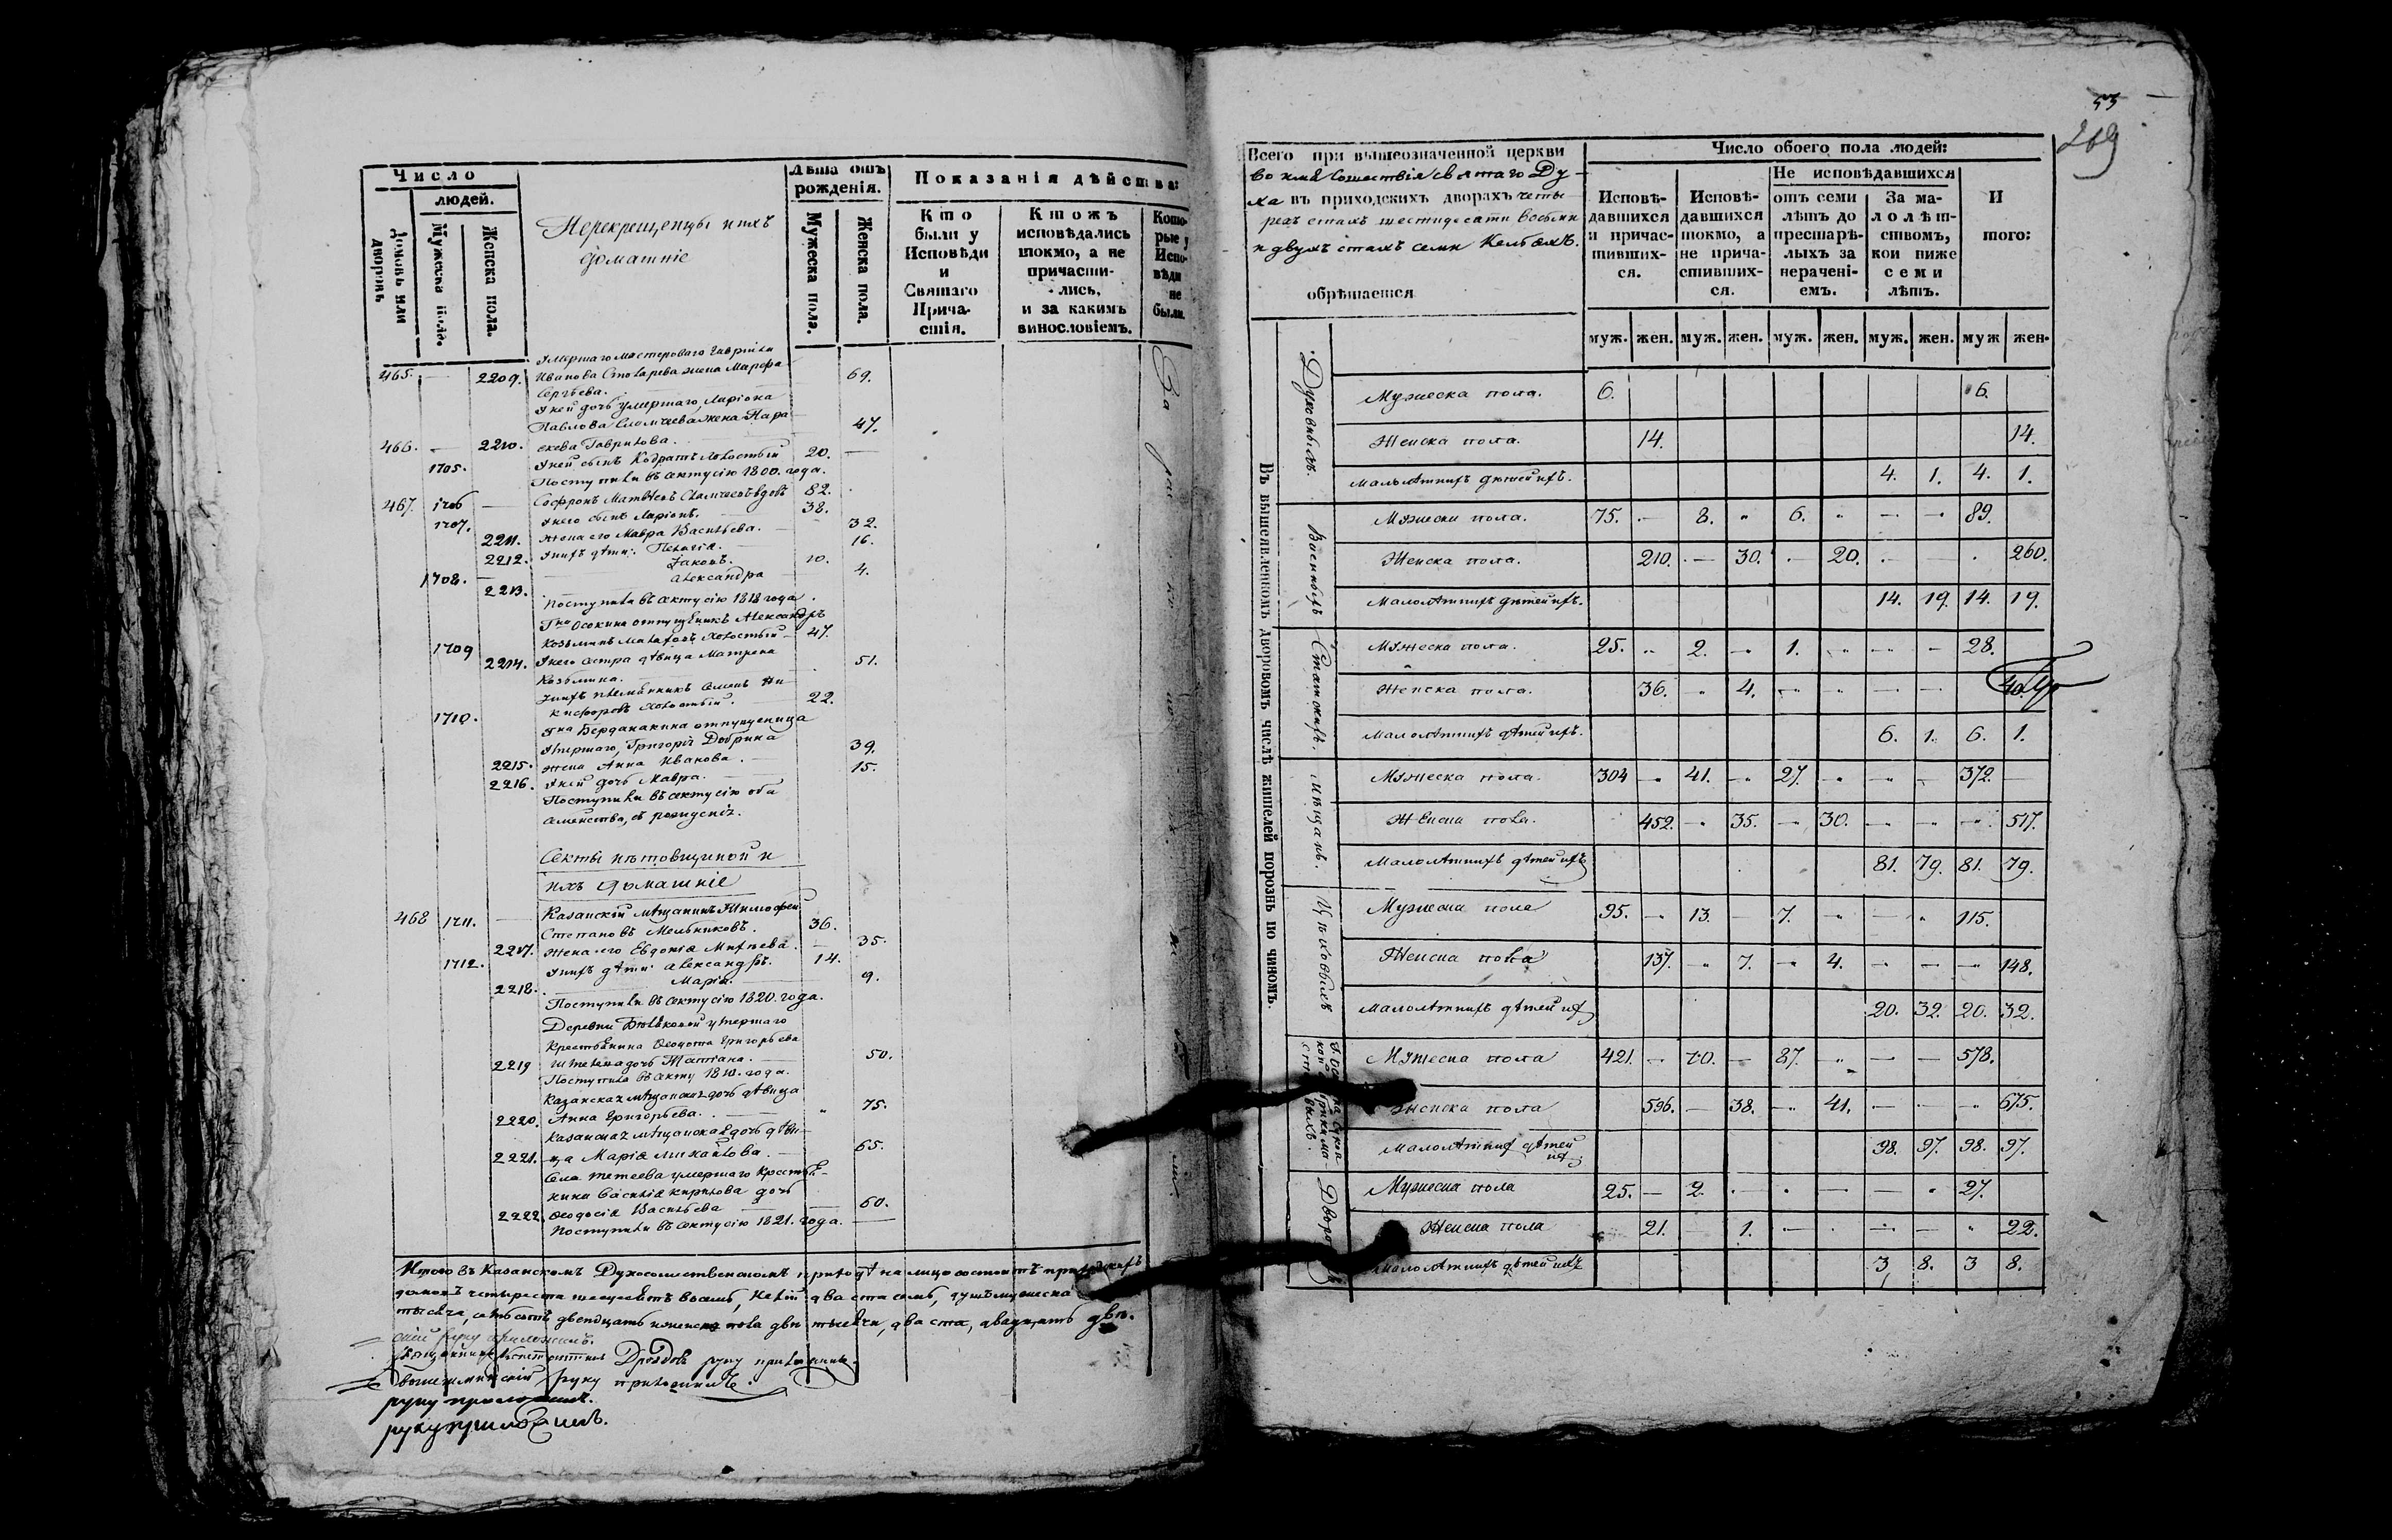 Число
людей.
Домовъ или дворовъ
Мужеска пола.
Женска пола.
Перекрещенцы и ихъ
домашніе
Лѣта отъ рожденія.
Мужеска пола.
Женска пола.
Показанія дѣйства:
Кто были у Исповѣди и Святаго Прича-стія.
Ктожъ исповѣдались токмо, а не причасти-лись, и за какимъ винословіемъ.
Кото-рые у Испо-вѣди не были.
Умершаго мастероваго Гаврилы
465. — 2209. Иванова Столарева жена Марфа 69.
Сергѣева.
У ней дочь умершаго Ларіона
Павлова жена Пара- 47.
466. — 2210. скева Гаврилова.
1705. У ней сынъ Кодратъ холостый 20. —
Поступили въ секту сію 1800. года.
467. 1706 — Софронъ Матвѣевъ вдовъ 82.
1707. У него сынъ Ларіонъ. 38.
2211. Жена его Мавра Васильева. — 32.
2212. У нихъ дѣти: Пелагія. 16.
1708. — Іаковъ. 10.
2213. Александра 4.
Поступили въ секту сію 1818 года.
Гна Осокина отпущеникъ Александръ
1709 Козьминъ холостый — 47.
2214. У него сестра дѣвица Матрена 51.
Козьмина.
У нихъ племянникъ Семенъ Ни-
1710. кифоровъ холостый. 22.
Гна отпущеница
Умершаго Григорія Добрина
2215. жена Анна Иванова. — 39.
2216. У ней дочь Мавра. 15.
Поступили въ секту сію оба
семейства, съ рожденія.
Секты нѣтовщиной и
ихъ домашніе
468 1711. — Казанскій мѣщанинъ Тимофей
Степановъ Мельниковъ. 36.
2217. Жена его Евдокія Михѣева. — 35.
1712. У нихъ дѣти: Александръ. 14.
2218. Марія. 9.
Поступили въ секту сію 1820. года.
Деревни умершаго
Крестьянина Григорьева
2219 дочь Татіана. — 50.
Поступила въ секту 1810. года.
Казанская мѣщанская дочь дѣвица
2220. Анна Григорьева. 75.
Казанская мѣщанская дочь дѣви-
2221. ца Марія Михайлова. — 65.
Села Тетеева умершаго Крестья-
нина Василія Кирилова дочь
2222. Ѳеодосія Васильева 60.
Поступили въ секту сію 1821. года.
Итого въ Казанскомъ Духосошественскомъ приходѣ на лицо состоитъ приходскихъ
домовъ четыреста шесдесятъ восемь, келій два ста семь, душъ мужеска
тысяча, семьсотъ двенадцать женска пола двѣ тысячи, два ста, двадцать двѣ.
руку приложилъ.
Дроздовъ руку приложилъ.
руку приложилъ.
руку приложилъ.
руку приложилъ.
53
269
Всего при вышеозначенной церкви
во имя Сошествія святаго Ду-
ха въ приходскихъ дворахъ четы-
рехъ стахъ шестидесяти восьми
и двухъ стахъ семи Кельяхъ.
обрѣтается
Число обоего пола людей:
Исповѣ-давшихся и причас-тивших-ся.
Исповѣ-давшихся токмо, а не прича-стивших-ся.
Не исповѣдавшихся
отъ семи лѣтъ до престарѣ-лыхъ за нерачені-емъ.
За ма-лолѣт-ствомъ, кои ниже семи лѣтъ.
И того:
муж. жен. муж. жен. муж. жен. муж. жен. муж жен.
Въ вышеявленномъ дворовомъ числѣ жителей порознь по чиномъ.
Духовныхъ.
Мужеска пола. 6. 6.
Женска пола. 14. 14.
Малолѣтнихъ дѣтей ихъ. 4. 1. 4. 1.
Военныхъ
Мужеска пола. 75. — 8. „ 6. „ — — 89.
Женска пола. 210. — 30. — 20. — — 260.
Малолѣтнихъ дѣтей ихъ. 14. 19. 14. 19.
Статскихъ.
Мужеска пола. 25. „ 2. „ 1. „ — — 28.
Женска пола. 36. „ 4. — „ — — 40.
Малолѣтнихъ дѣтей ихъ. 6. 1. 6. 1.
Мѣщанъ.
Мужеска пола. 304 — 41. — 27. „ — — 372. —
Женска пола. 452. — 35. — 30. — — — 517.
Малолѣтнихъ дѣтей ихъ 81. 79. 81. 79.
Цѣховыхъ
Мужеска пола 95. — 13. — 7. „ — „ 115.
Женска пола 137. — 7. — 4. — — — 148.
Малолѣтнихъ дѣтей ихъ 20. 32. 20. 32.
Мужеска пола 421. — 70. — 87. „ — — 578.
Женска пола 596. — 38. — 41. — — — 675.
Малолѣтнихъ дѣтей ихъ 98. 97. 98. 97.
Дворо
Мужеска пола 25. — 2. — „ — — „ 27.
Женска пола 21. — 1. — „ — — „ 22.
Малолѣтнихъ дѣтей ихъ 3 8. 3 8.